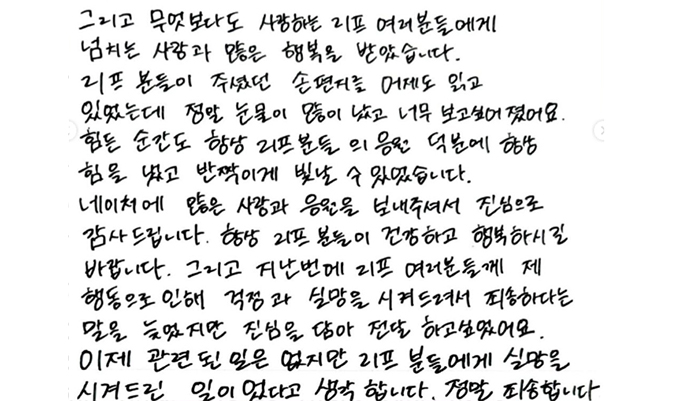 그리고 무엇보다도 사랑하는 리프 여러분들에게
넘치는 사랑과 많은 행복을 받았습니다.
리프 분들이 주셨던 손편지를 어제도 읽고
있었는데 정말 눈물이 많이 났고 너무 보고싶어졌어요.
힘든 순간도 항상 리프분들의 응원 덕분에 항상
힘을 냈고 반짝이게 빛날 수 있었습니다.
네이처에 많은 사랑과 응원을 보내주셔서 진심으로
감사드립니다. 항상 리프 분들이 건강하고 행복하시길
바랍니다. 그리고 지난번에 리프 여러분들께 제
행동으로 인해 걱정과 실망을 시켜드려서 죄송하다는
말을 늦었지만 진심을 담아 전달 하고싶었어요.
이제 관련된 일은 없지만 리프 분들에게 실망을
시켜드린 일이 있다고 생각합니다. 정말 죄송합니다